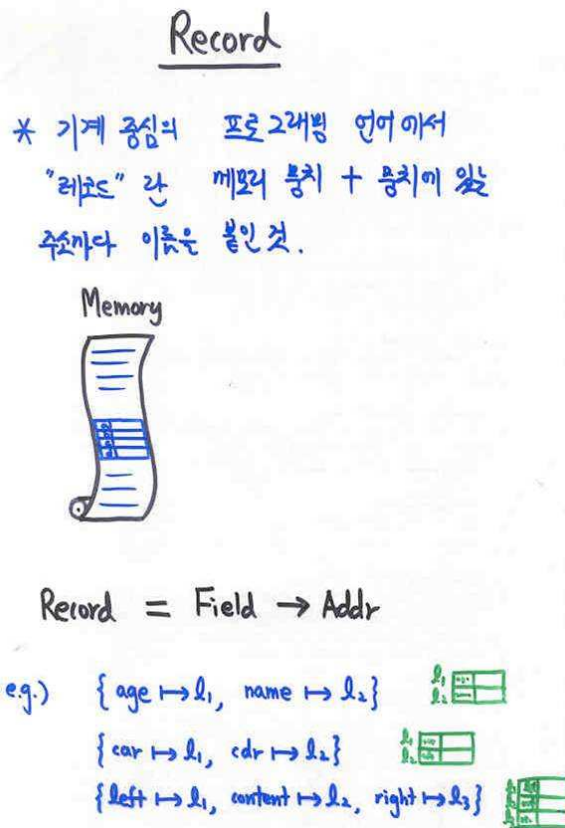 Record
* 기계 중심의 프로그래밍 언어에서
"레코드" 란 메모리 뭉치 + 뭉치에 있는
주소마다 이름을 붙인 것.
Memory
Record = Field → Addr
e.g.) { age ↦ l₁, name ↦ l₂} l₁ l₂
{car ↦ l₁, cdr ↦ l₂} l₁ l₂
{left ↦ l₁, content ↦ l₂, right ↦ l₃}